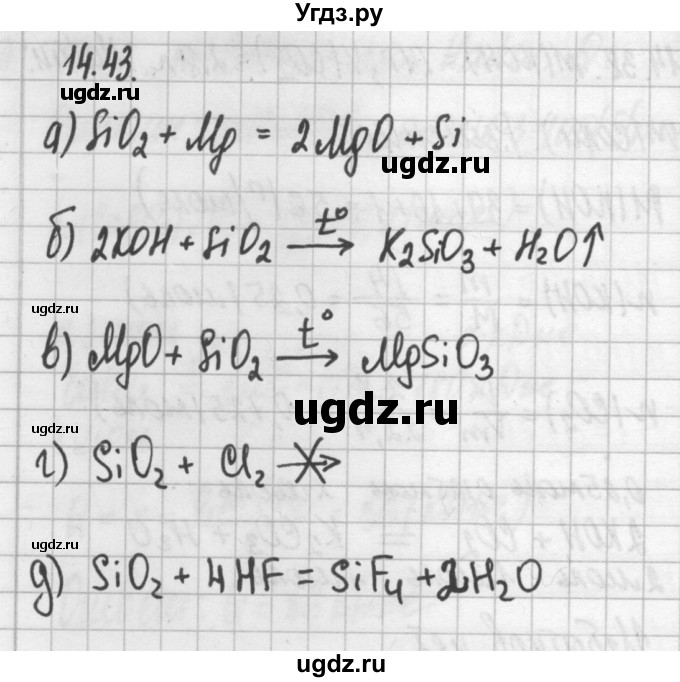 Угдз.ру
14.43.
ugdz.ru
а) SiO₂ + Mg = 2MgO + Si
ugdz.ru
б) 2KOH + SiO₂ —t°→ K₂SiO₃ + H₂O↑
ugdz.ru
в) MgO + SiO₂ —t°→ MgSiO₃
ugdz.ru
ugdz.ru
г) SiO₂ + Cl₂ ↛
ugdz.ru
д) SiO₂ + 4HF = SiF₄ + 2H₂O
ugdz.ru